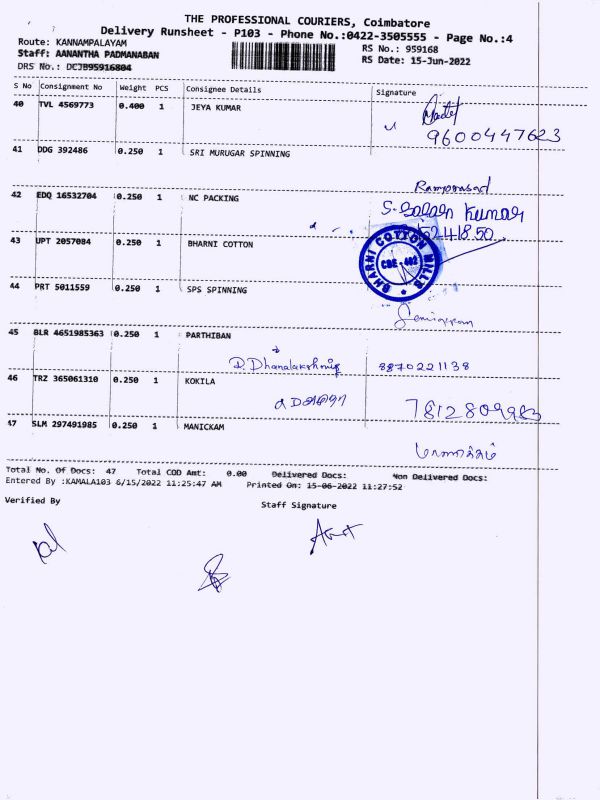 THE PROFESSIONAL COURIERS, Coimbatore
Delivery Runsheet - P103 - Phone No.:0422-3505555 - Page No.:4
Route: KANNAMPALAYAM
RS No.: 959168
Staff: AANANTHA PADMANABAN
RS Date: 15-Jun-2022
DRS No.: DCJB95916804
S No Consignment No Weight PCS Consignee Details Signature
40 TVL 4569773 0.400 1 JEYA KUMAR
9600447623
41 DDG 392486 0.250 1 SRI MURUGAR SPINNING
Ramprasad
42 EDQ 16532704 0.250 1 NC PACKING
Kumar
43 UPT 2057084 0.250 1 BHARNI COTTON
BHARNI COTTON MILLS
CBE - 402
44 PRT 5011559 0.250 1 SPS SPINNING
45 BLR 4651985363 0.250 1 PARTHIBAN
D. Dhanalakshmi 8870221138
46 TRZ 365061310 0.250 1 KOKILA
7812809983
47 SLM 297491985 0.250 1 MANICKAM
Total No. Of Docs: 47 Total COD Amt: 0.00 Delivered Docs: Non Delivered Docs:
Entered By :KAMALA103 6/15/2022 11:25:47 AM Printed On: 15-06-2022 11:27:52
Verified By
Staff Signature